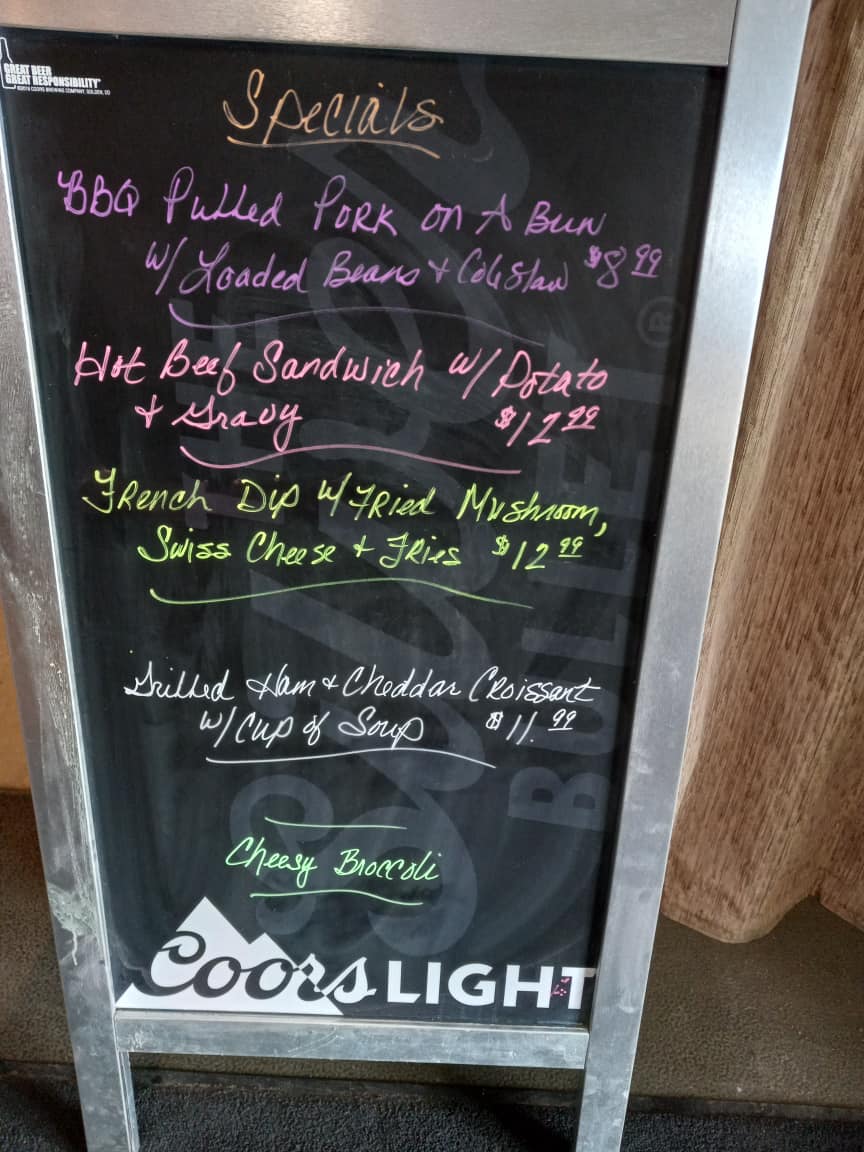 GREAT BEER
GREAT RESPONSIBILITY
Specials
BBQ Pulled Pork on A Bun
w/ Loaded Beans + Coleslaw $8.99
Hot Beef Sandwich w/ Potato
+ Gravy $12.99
French Dip w/ Fried Mushroom,
Swiss Cheese + Fries $12.99
Grilled Ham + Cheddar Croissant
w/ Cup of Soup $11.99
Cheesy Broccoli
Coors LIGHT
THE
Silver
BULLET ®